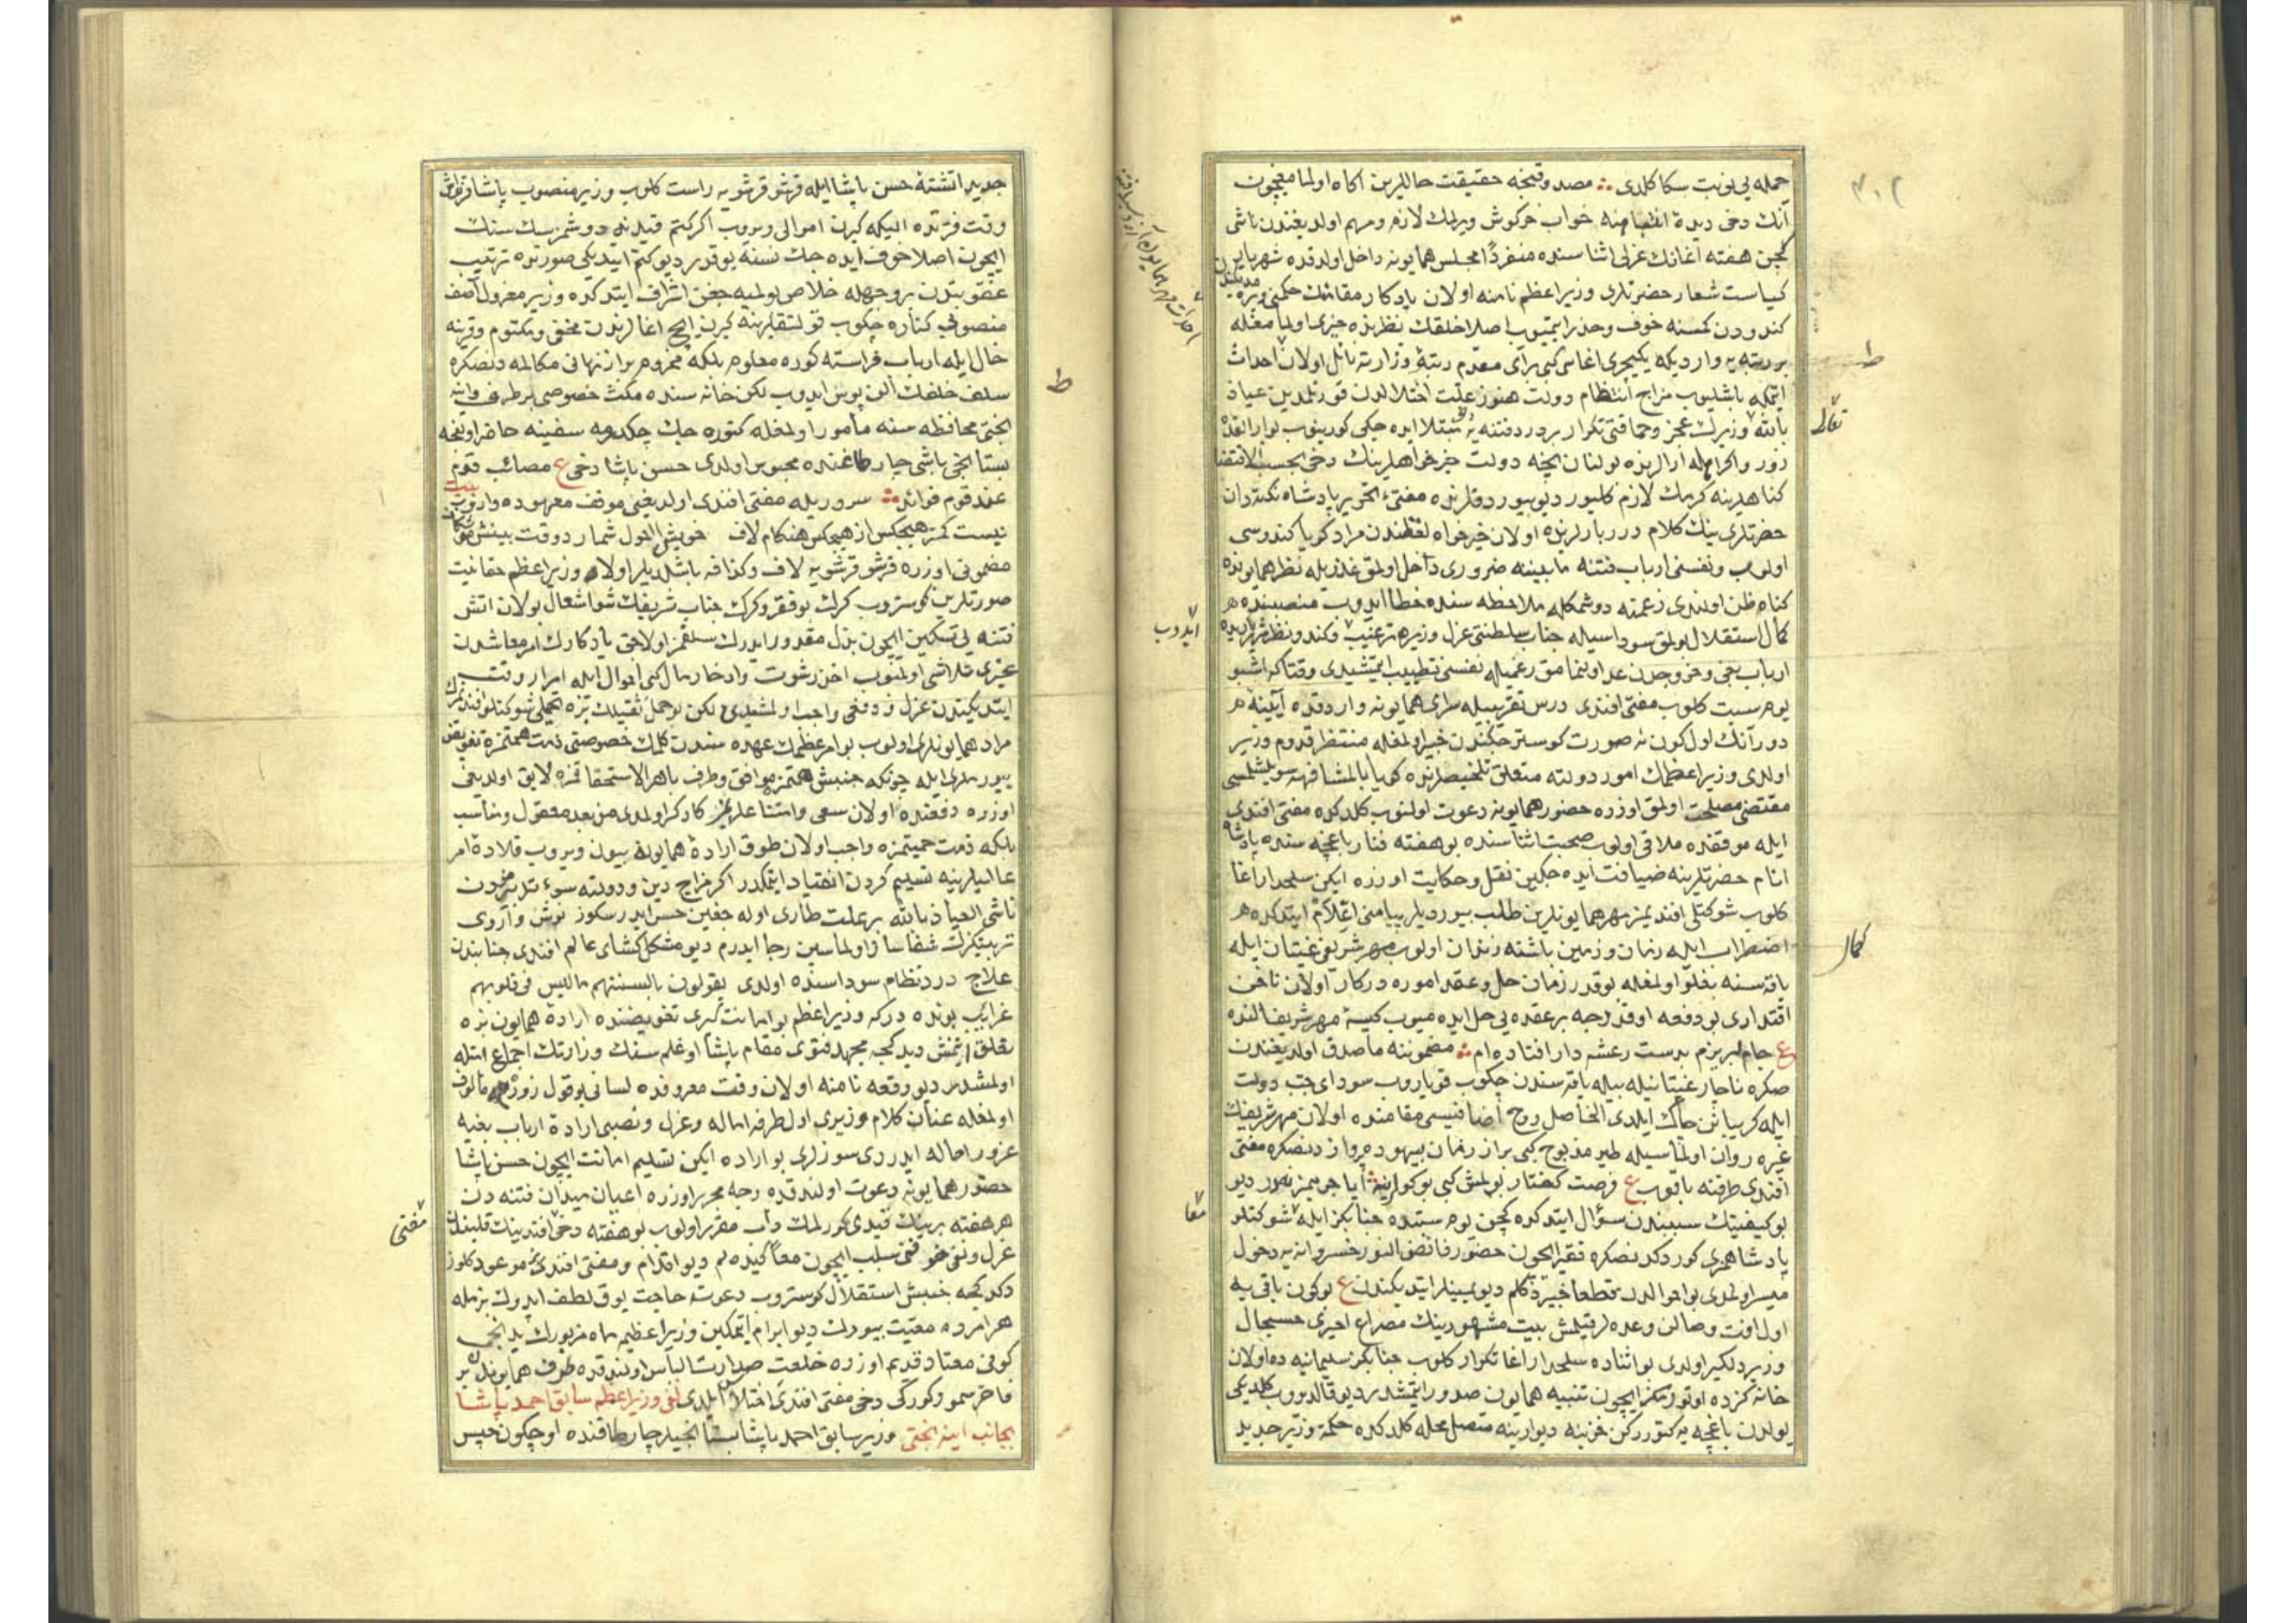 جمله یی نوبت سکا کلدی ∴ مصدوقنجه حقیقت حاللرین آکاه اولمامغچون
آنك دخی دیدهٔ انتباهنه خواب خرکوش ویرلمك لازم ومهم اولدیغندن ناشی
کچن هفته آغانك عزلی اثناسنده منفرداً مجلس همایونه داخل اولدقده شهریار
کیاست شعار حضرتلری وزیر اعظم نامنه اولان یادکار مقامنك حکمنی
کندودن کمسنه خوف وحذر ایتمیوب اصلا خلقك نظرنده چیزی اولمامغله
بر رتبه یه واردیکه یکیچری اغاسی کبی برآی مقدم رتبهٔ وزارته نائل اولان احداث
ایتمکه باشلیوب مزاج انتظام دولت هنوز علت اختلالدن قورتلمدین عیاذ
بالله وزیرك عجز وحماقتی تکرار بر درد فتنه یه مبتلا ایده جکی کورینوب
زور واکراهله آرالرنده بولنان انجه دولت خیرخواهلرینك دخی بحسب الاقتضا
کناهلرینه کرمك لازم کلیور دیو بیوردقلرنده مفتیء نحریر پادشاه نکته دان
حضرتلرینك کلام درربارلرنده اولان خیرخواه لفظندن مراد کویا کندوسی
اولوب ونفسنی ارباب فتنه مابیننه ضروری داخل اولمق عذریله نظر همایونده
کناه ظن اولندی زعمنه دوشمکله ملاحظه سنده خطا ایدوب منصبنده
کمال استقلال بولمق سوداسیله جناب سلطنتی عزل وزیره ترغیب وکندو
ارباب بغی وخروجدن عد اولنمامق زعمیله نفسنی تطییب ایتمشیدی وقتاکه اشبو
یوم سبت کلوب مفتی افندی درس تقریبیله سرای همایونه واردقده آیینهٔ
دورآنك اول کون نه صورت کوسترجکندن خبیر اولمغله منتظر قدوم وزیر
اولدی وزیر اعظمك امور دولته متعلق تلخیصلرنده کویا بالمشافهه سویلشلمسی
مقتضی مصلحت اولمق اوزره حضور همایونه دعوت اولنوب کلدکده مفتی افندی
ایله موقفده ملاقی اولوب صحبت اثناسنده بو هفته فنار باغچه سنده پادشاه
انام حضرتلرینه ضیافت ایده جکین نقل وحکایت اوزره ایکن سلحدار آغا
کلوب شوکتلی افندیمز مهر همایونلرین طلب بیوردیلر پیامنی اعلام ایتدکده
اضطراب ایله زمان وزمین باشنه زندان اولوب مهر شریفی غیتان ایله
یاقه سنه بغلو اولمغله بو قدر زمان حل وعقد اموره درکار اولان ناخن
اقتداری بو دفعه اوقدرجه بر عقده یی حل ایده میوب کیسهٔ مهر شریف النده
ع جام لبریزم بدست رعشه دار افتاده ام ∴ مضموننه ماصدق اولدیغندن
صکره ناچار غیتانیله بیله یاقه سندن چکوب قوپاروب سودای حب دولت
ایله کریبانن چاك ایلدی الحاصل روح اضافیسی مقامنده اولان مهر شریفك
غیره روان اولماسیله طیر مذبوح کبی براز زمان بیهوده پرواز دنصکره مفتی
افندی طرفنه باقوب ع فرصت کفتار بولمش کبی بو کوکلرینه آیا جرمیمز نه در دیو
بو کیفیتك سببندن سؤال ایتدکده کچن یوم سبتده جنابکز ایله شوکتلو
پادشاهمزی کوردکدنصکره فقیر ایچون حضور فائض النور خسروانه یه دخول
میسر اولمدی بو احوالدن قطعا خبیر دکلم دیو یمینلر ایتدیکندن ع بو کون باقی یه
اول افت وصالن وعده لر قیلمش بیت مشهورینك مصراع اخیری حسبحال
وزیر دلکیر اولدی بو اثناده سلحدار اغا تکرار کلوب جنابکز سلیمانیه ده اولان
خانه کزده اوتورمکز ایچون تنبیه همایون صدور ایتمشدر دیو قالدیروب کلدیکی
یولدن باغچه یه کتوررکن خزینه دیوارینه متصل محله کلدکده حکمة وزیر جدید
تعالی
ایدوب
کمال
مقا
جدید انشته حسن پاشا ایله قرشو قرشویه راست کلوب وزیر منصوب پاشا قرنداش
وقت فرتده الیکه کیرن اموالی ویروب اکر کتم قیدینه دوشمزسك سنك
ایچون اصلا خوف ایده جك نسنه یوقدر دیو کتم ایتدیکی صورتده ترتیب
عقوبتدن بر وجهله خلاص بولمیه جغن اشراف ایتدکده وزیر معزول آصف
منصوبی کناره چکوب قولتقلرینه کیرن ایچ اغالرندن مخفی ومکتوم وقرینه
حال ایله ارباب فراسته کوره معلوم بلکه مجزوم براز نهانی مکالمه دنصکره
سلف خلفك الن پوس ایدوب لکن خانه سنده مکث خصوصی برطرف وانه
بختی محافظه سنه مأمور اولمغله کتوره جك چکدرمه سفینه حاضر اولنجه
بستانجی باشی چارطاغنده محبوس اولدی حسن پاشا دخی ع مصائب قوم
عند قوم فوائد ∴ سروریله مفتی افندی اولدیغی موقف معهوده واروب بیت
نیست کمتر هیچکس از هیچکس هنکام لاف   خویش را احول شمارد وقت بینش
مضمونی اوزره قرشو قرشویه لاف وکزافه باشلدیلر اولا وزیر اعظم حقانیت
صورتلرین کوستروب کرك بو فقیر وکرك جناب شریفك شو اشعال بولان اتش
فتنه یی تسکین ایچون بذل مقدور ایدرك سلفمز اولاجق یادکارك امر معاشدن
غیری تلاشی اولمیوب اخذ رشوت وادخار مال کبی احوال ایله امرار وقت
ایتدیکندن عزل ودفعی واجب اولمشیدی لکن بو حمل ثقیلك بزه تحمیلی شوکتلو افندیمزك
مراد همایونلری اولوب بو امر عظیمك عهده سندن کلمك خصوصنی ذمت همتمزه تفویض
بیوردیلر ایله چونکه جنبش همتمز موافق وظرف باهر الاستحقاقمزه لایق اولدیغی
اوزره دفعنده اولان سعی وامتناعلریمز کارکر اولمدی من بعد معقول ومناسب
بلکه ذمت حمیتمزه واجب اولان طوق ارادهٔ همایونه بیون ویروب قلادهٔ امر
عالیلرینه تسلیم کردن انقیاد ایتمکدر اکر مزاج دین ودولته سوء تدبیرمزدن
ناشی العیاذ بالله بر علت طاری اوله جغین حس ایدرسکوز نوش داروی
تربیتکزك شفاسا اولماسین رجا ایدرم دیو مشکل کشای عالم افندی جنابندن
علاج درد نظام سوداسنده اولدی یقولون بالسنتهم مالیس فی قلوبهم
غرائب بونده درکه وزیر اعظم بو امانت کبری تفویضنده ارادهٔ همایون بزه
تعلق ایتمش دیدکجه مجتهد فتوی مقام پاشا اوغلم سنك وزارتك اجماع ایله
اولمشدر دیو رقعه نامنه اولان وقت معروفده لسانی بو قول زوره مألوف
اولمغله عنان کلام وزیری اول طرفه اماله وعزل ونصبی ارادهٔ ارباب بغیه
غرور احاله ایدردی سوزلری بو اراده ایکن تسلیم امانت ایچون حسن پاشا
حضور همایونه دعوت اولندقده وجه محرر اوزره اعیان میدان فتنه دن
هر هفته برینك قیدی کورلمك دأب مقرر اولوب بو هفته دخی افندینك قلبندن
عزل ونفی خوفنی سلب ایچون معاً کیده لم دیو اقدام ومفتی افندی موعود کلوز
دکدکجه جنبش استقلال کوستروب دعوته حاجت یوق لطف ایدوك بزمله
هر امرده معیت بیورك دیو ابرام ایتمکین وزیر اعظم ماه مزبورك یدنجی
کونی معتاد قدیم اوزره خلعت صدارت الباس اولندقده طرف همایوندن بر
فاخر سمور کورکی دخی مفتی افندی اختلاس ایلدی نفی وزیر اعظم سابق احمد پاشا
بجانب اینه بختی وزیر سابق احمد پاشا بستانجیلر چارطاقنده اوچ کون حبس
ط
مفتی